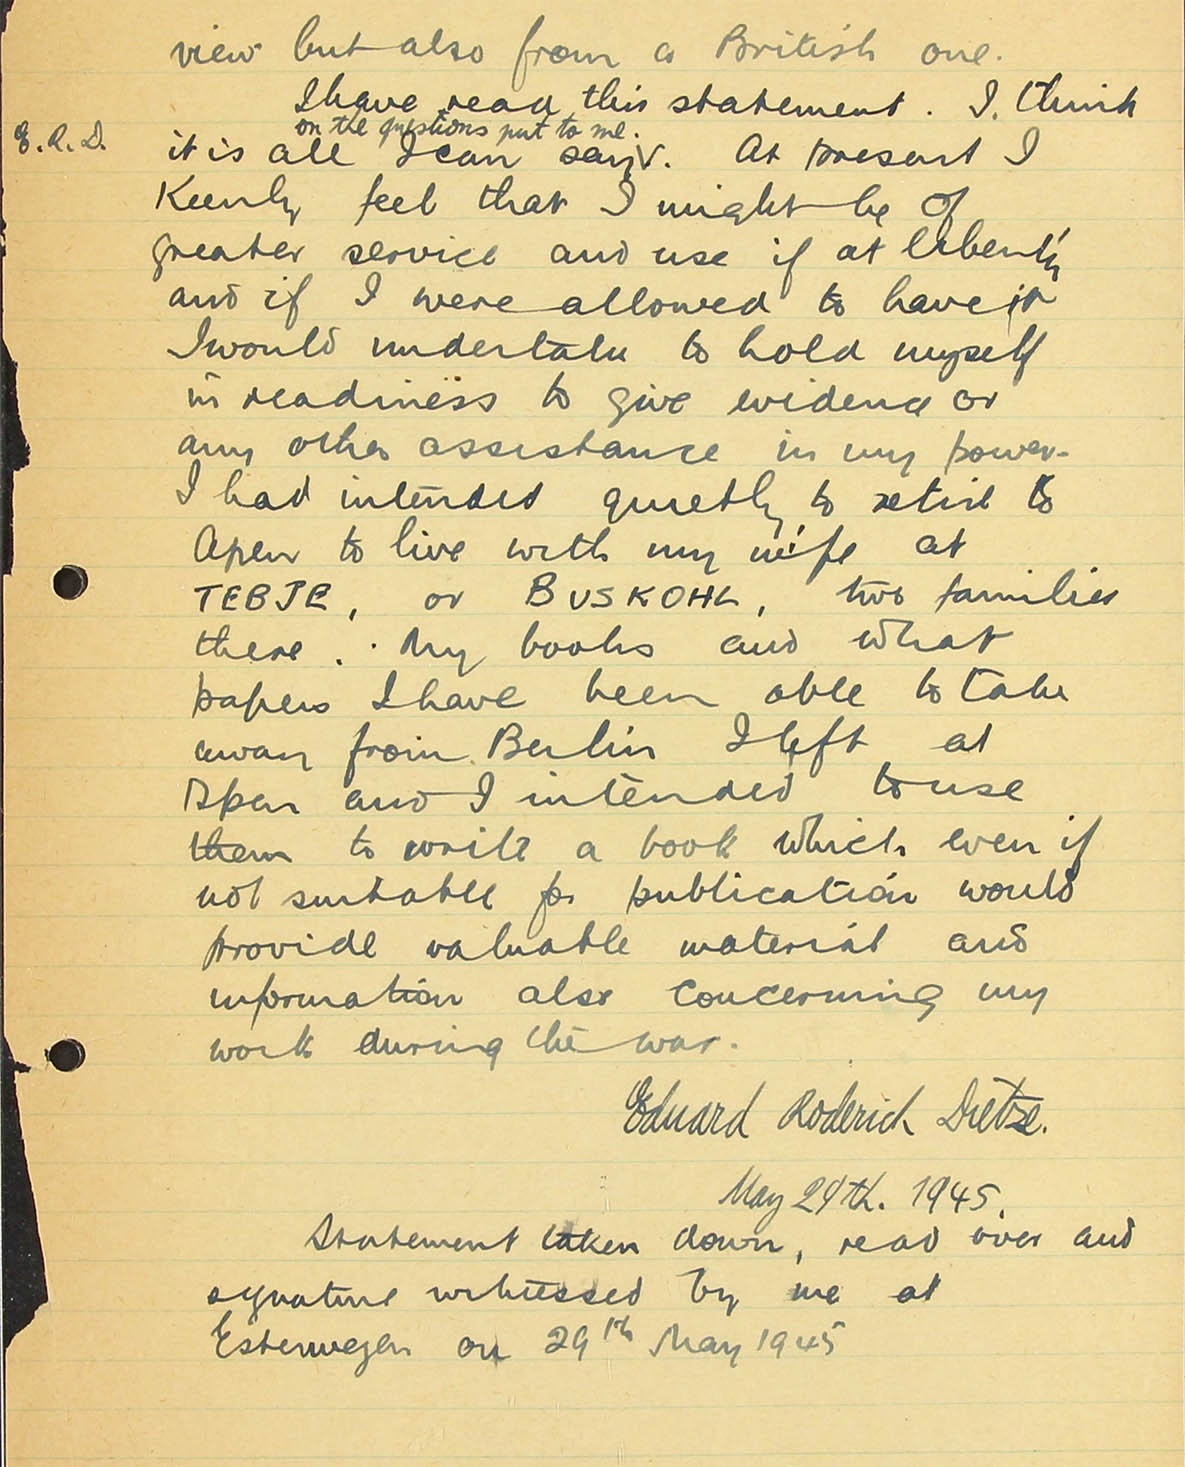 view but also from a British one.
I have read this statement. I think
on the questions put to me.
E.R.D. it is all I can say. At present I
keenly feel that I might be of
greater service and use if at liberty
and if I were allowed to have it
I would undertake to hold myself
in readiness to give evidence or
any other assistance in my power.
I had intended quietly to retire to
Apen to live with my wife at
TEBJE, or BUSKOHL, two families
there. My books and what
papers I have been able to take
away from Berlin I left at
Apen and I intended to use
them to write a book which even if
not suitable for publication would
provide valuable material and
information also concerning my
work during the war.
Eduard Roderich Dietze.
May 29th. 1945.
Statement taken down, read over and
signature witnessed by me at
Esterwegen on 29th May 1945